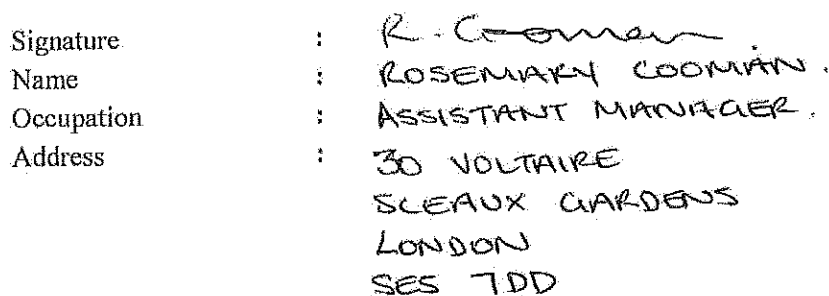 Signature : R. Cooman
Name : ROSEMARY COOMAN.
Occupation : ASSISTANT MANAGER.
Address : 30 VOLTAIRE
SCEAUX GARDENS
LONDON
SE5 7DD